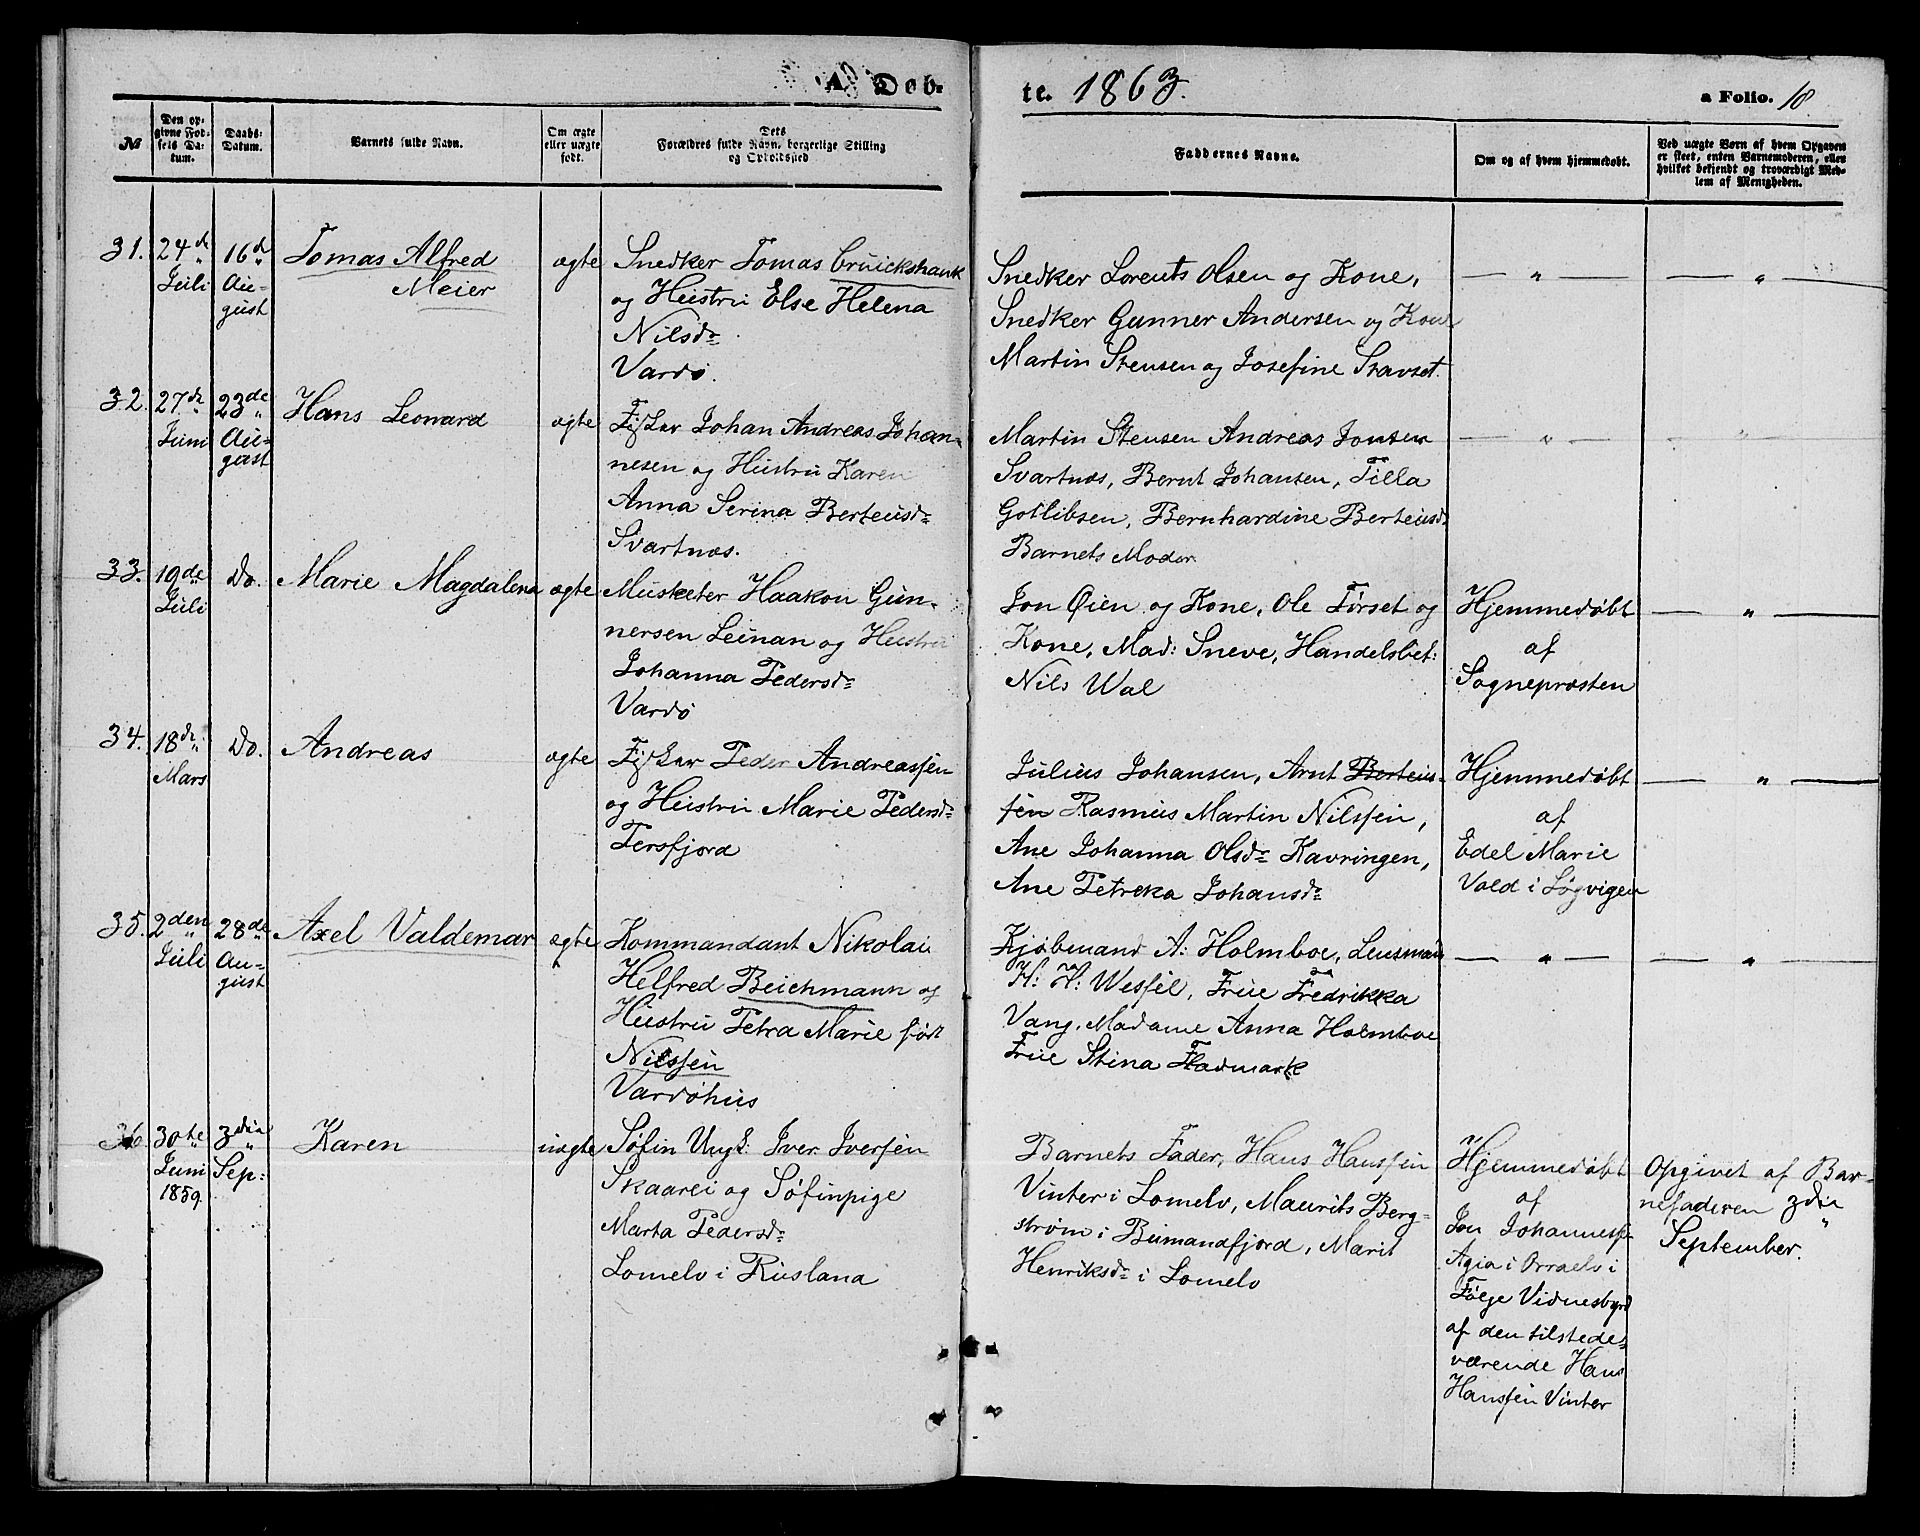 A. Døb-
te. 1863.
a Folio. 18
No
Den op-
givne Fød-
sels Da-
tum.
Daabs-
Datum.
Varnets fulde Navn.
Om ægte
eller uægte
født.
Dets
Forældres fulde Navn, borgerlige Stilling
og Opholdssted
Faddernes Navne.
Om og af hvem hjemmedøbt.
Ved uægte Børn af hvem Opgaven
er skeet, enten Barnemoderen, eller
hvilket bekjendt og troværdigt Med-
lem af Menigheden.
31.
24de
Juli
16de
Au-
gust
Tomas Alfred
Meier
ægte
Snedker Tomas Cruickshank
og Hustru Else Helena
Nilsdr
Vardø.
Snedker Lorents Olsen og Kone,
Snedker Gunner Andersen og Kone
Martin Stensen og Josefine Stavset.
— " —
— " —
32.
27de
Juni
23de
Au-
gust
Hans Leonard
ægte
Fisker Johan Andreas Johan-
nesen og Hustru Karen
Anna Serina Berteusdr
Svartnæs.
Martin Stensen Andreas Jonsen
Svartnæs, Bernt Johansen, Tilla
Gotlibsen, Bernhardine Berteusdr
Barnets Moder
— " —
— " —
33.
19de
Juli
Do.
Marie Magdalena
ægte
Musketer Haakon Gun-
nersen Leinan og Hustru
Johanna Pedersdr
Vardø
Jon Øien og Kone, Ole Førset og
Kone, Mad: Sneve, Handelsbet:
Nils Wal
Hjemmedøbt
af
Sognepræsten
— " —
34.
18de
Mars
Do.
Andreas
ægte
Fisker Peder Andreassen
og Hustru Marie Pedersdr
Persfjord
Julius Johansen, Arnt Berteus-
sen Rasmus Martin Nilssen,
Ane Johanna Olsdr Kavringen,
Ane Petreka Johansdr
Hjemmedøbt
af
Edel Marie
Vold i Løgvigen
— " —
35.
2den
Juli
28de
Au-
gust
Axel Valdemar
ægte
Kommandant Nikolai
Helfred Beichmann og
Hustru Petra Marie født
Nilssen
Vardøhus
Kjøbmand A: Holmboe, Lensmand
H: H: Wessel, Frue Fredrikka
Vang, Madame Anna Holmboe
Frue Stina Fladmark
— " —
— " —
36
30te
Juni
1859.
3dia
Sep:
Karen
uægte
Søfin Ungk: Iver Iversen
Skaarei og Søfinpige
Marta Pedersdr
Lomelv i Rusland
Barnets Fader, Hans Hanssen
Vinter i Lomelv, Maurits Berg-
strøm i Bumandfjord, Marit
Henriksdr i Lomelv
Hjemmedøbt
af
Jon Johanness:
Agia i Orraelv i
Følge Vidnesbyrd
af den tilstede-
værende Hans
Hanssen Vinter
Opgivet af Bar-
nefaderen 3dia
September.